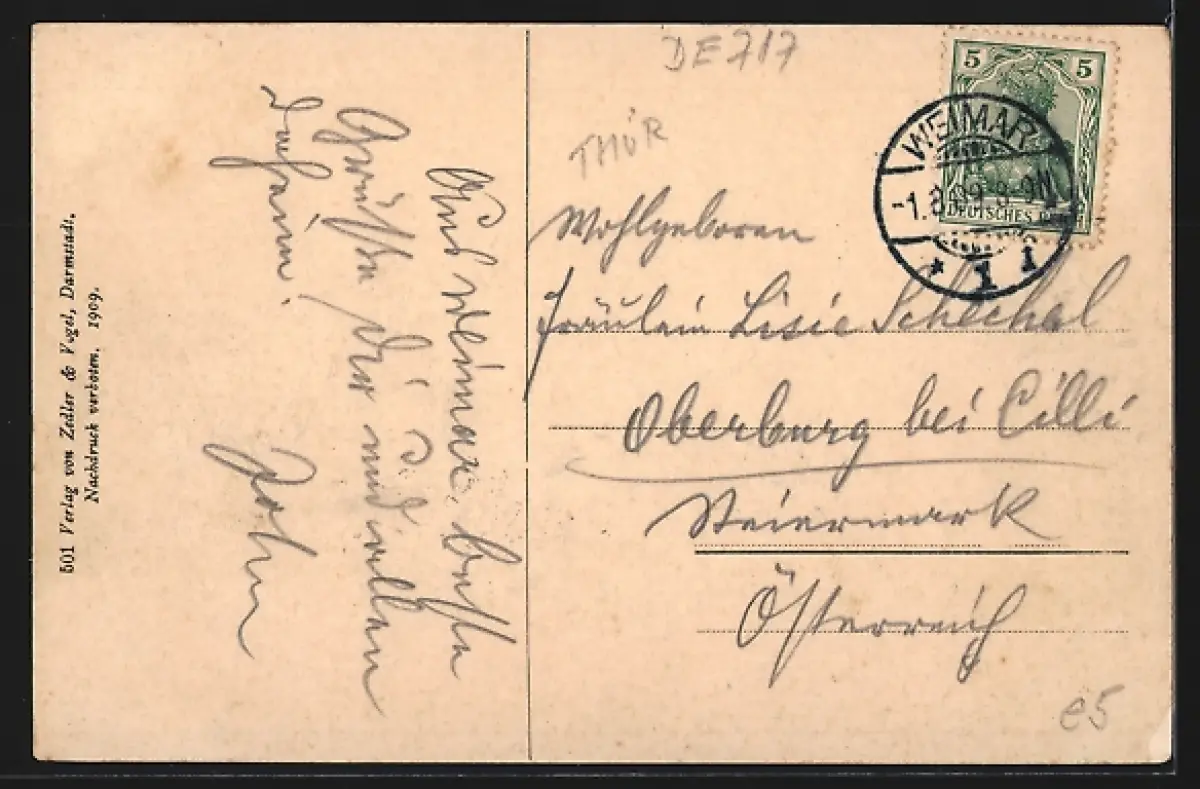 DE 717
THÜR
5 5
DEUTSCHES
WEIMAR
-1.8.09.8-9N
* 1 1
Wohlgeboren
Fräulein Lisie Schechal
Oberburg bei Cilli
Steiermark
Österreich
e5
Aus Weimar beste
Grüße Dir und allen
daheim.
John
501 Verlag von Zedler & Vogel, Darmstadt.
Nachdruck verboten. 1909.